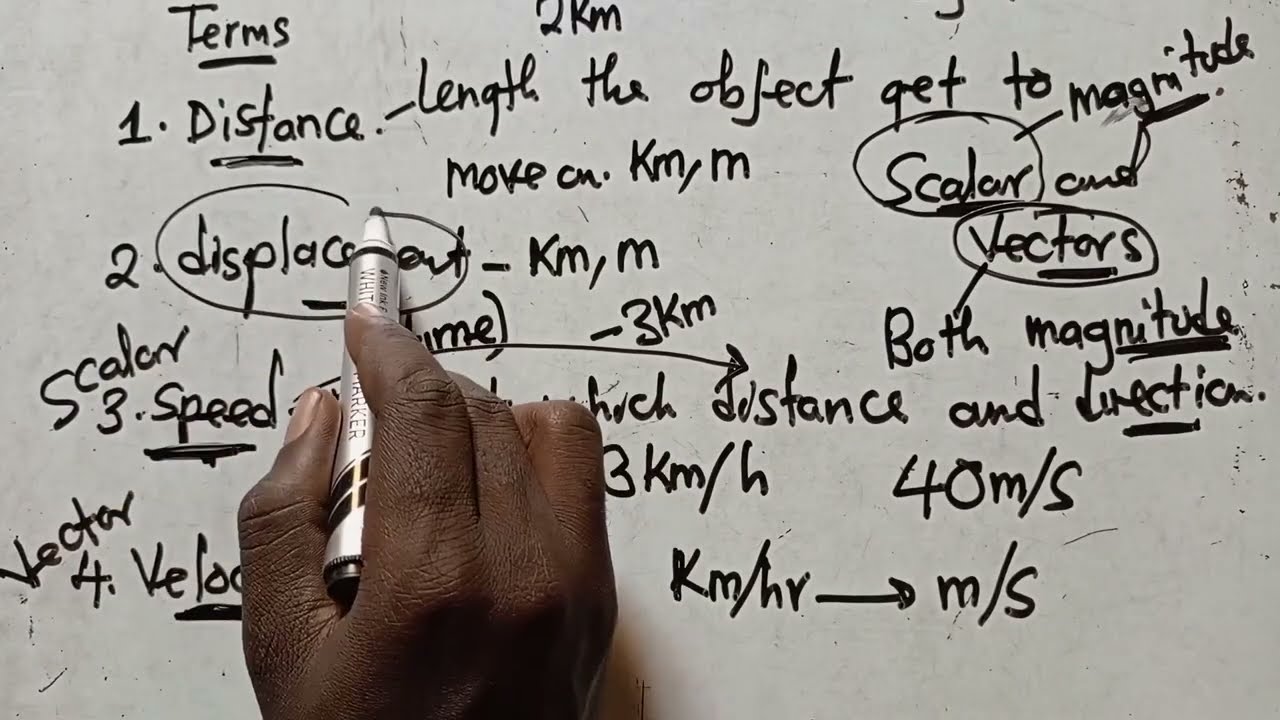 Terms
2Km
1. Distance. - Length the object get to
magnitude
move on. Km, m
Scalar and
Vectors
2. displacement - Km, m
- 3Km
Both magnitude
Scalar
3. Speed which distance and direction.
3Km/h 40m/s
Vector
4. Km/hr → m/s
WHIT
MARKER